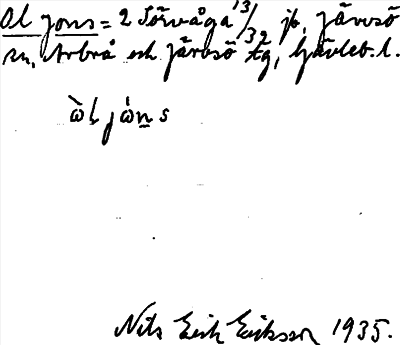 Ol jons = 2 Sörvåga 13/32 jb, Järvsö
sn, Arbrå och Järvsö tg, Gävleb. l.
ὼl jώn̲ s
Nils Erik Eriksson 1935.